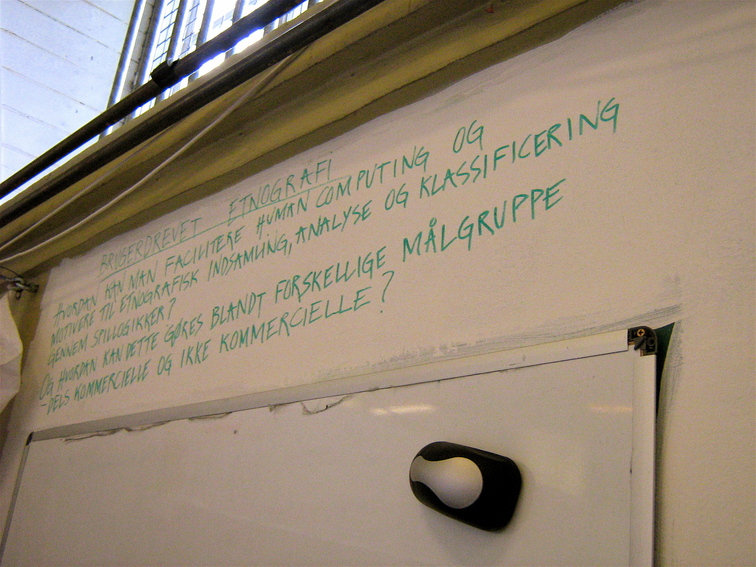 BRUGERDREVET ETNOGRAFI
HVORDAN KAN MAN FACILITERE HUMAN COMPUTING OG
MOTIVERE TIL ETNOGRAFISK INDSAMLING, ANALYSE OG KLASSIFICERING
GENNEM SPILLOGIKKER?
OG HVORDAN KAN DETTE GØRES BLANDT FORSKELLIGE MÅLGRUPPE
- DELS KOMMERCIELLE OG IKKE KOMMERCIELLE?